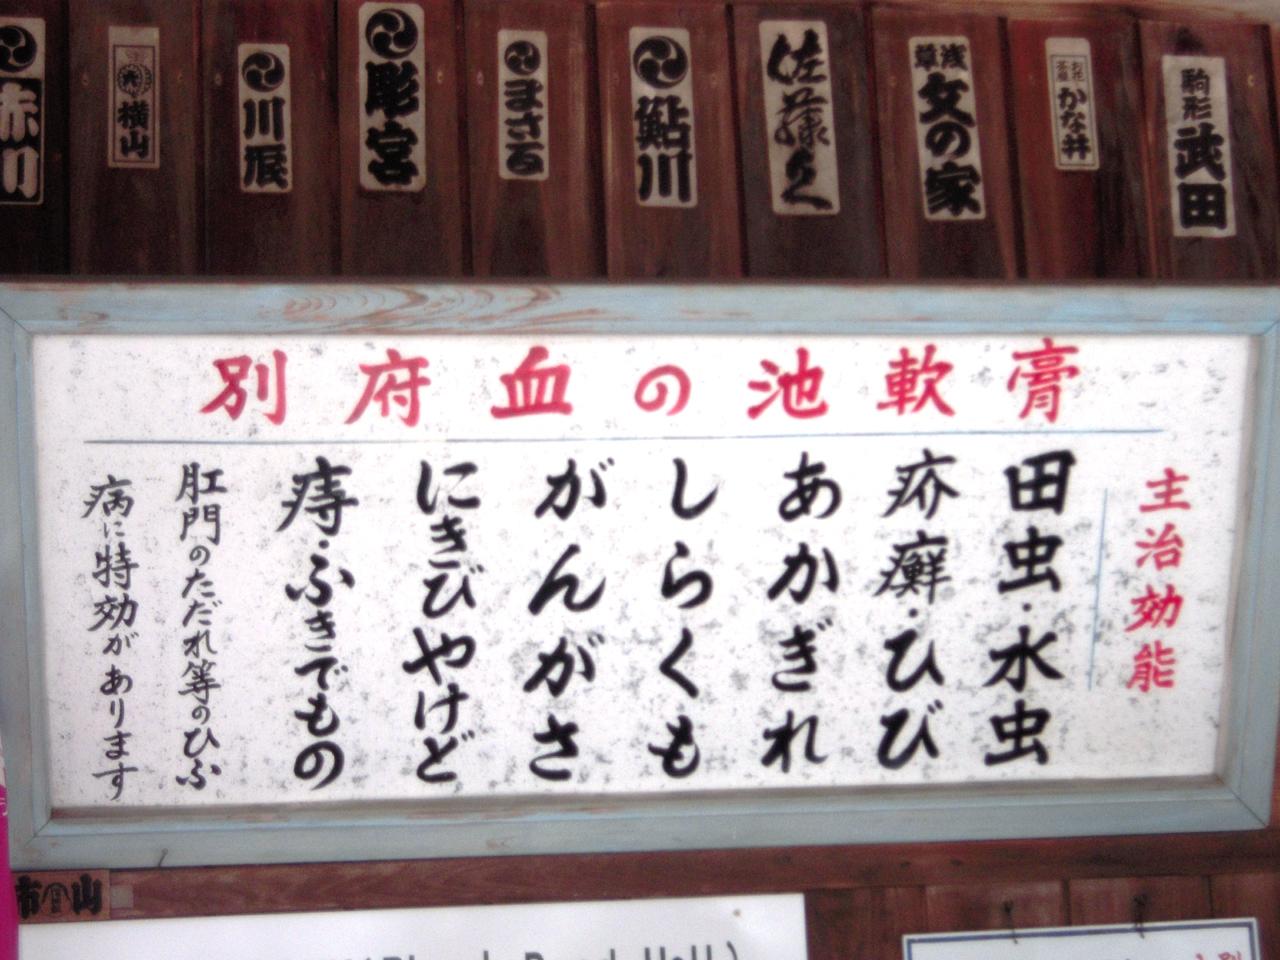 赤川
横山
川辰
彫宮
まさる
鮎川
佐藤
浅草
文の家
お花
茶屋
かな井
駒形
武田
別府血の池軟膏
主治効能
田虫・水虫
疥癬・ひび
あかぎれ
しらくも
がんがさ
にきびやけど
痔・ふきでもの
肛門のただれ等のひふ
病に特効があります
市山